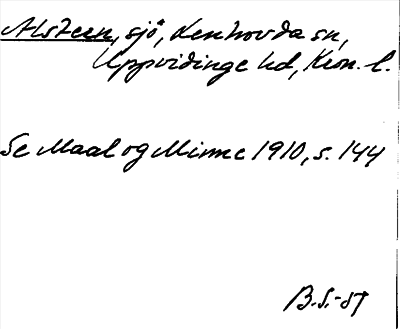 Alstern, sjö, Lenhovda sn,
Uppvidinge hd, Kron. l.
Se Maal og Minne 1910, s. 144
B.S.-57